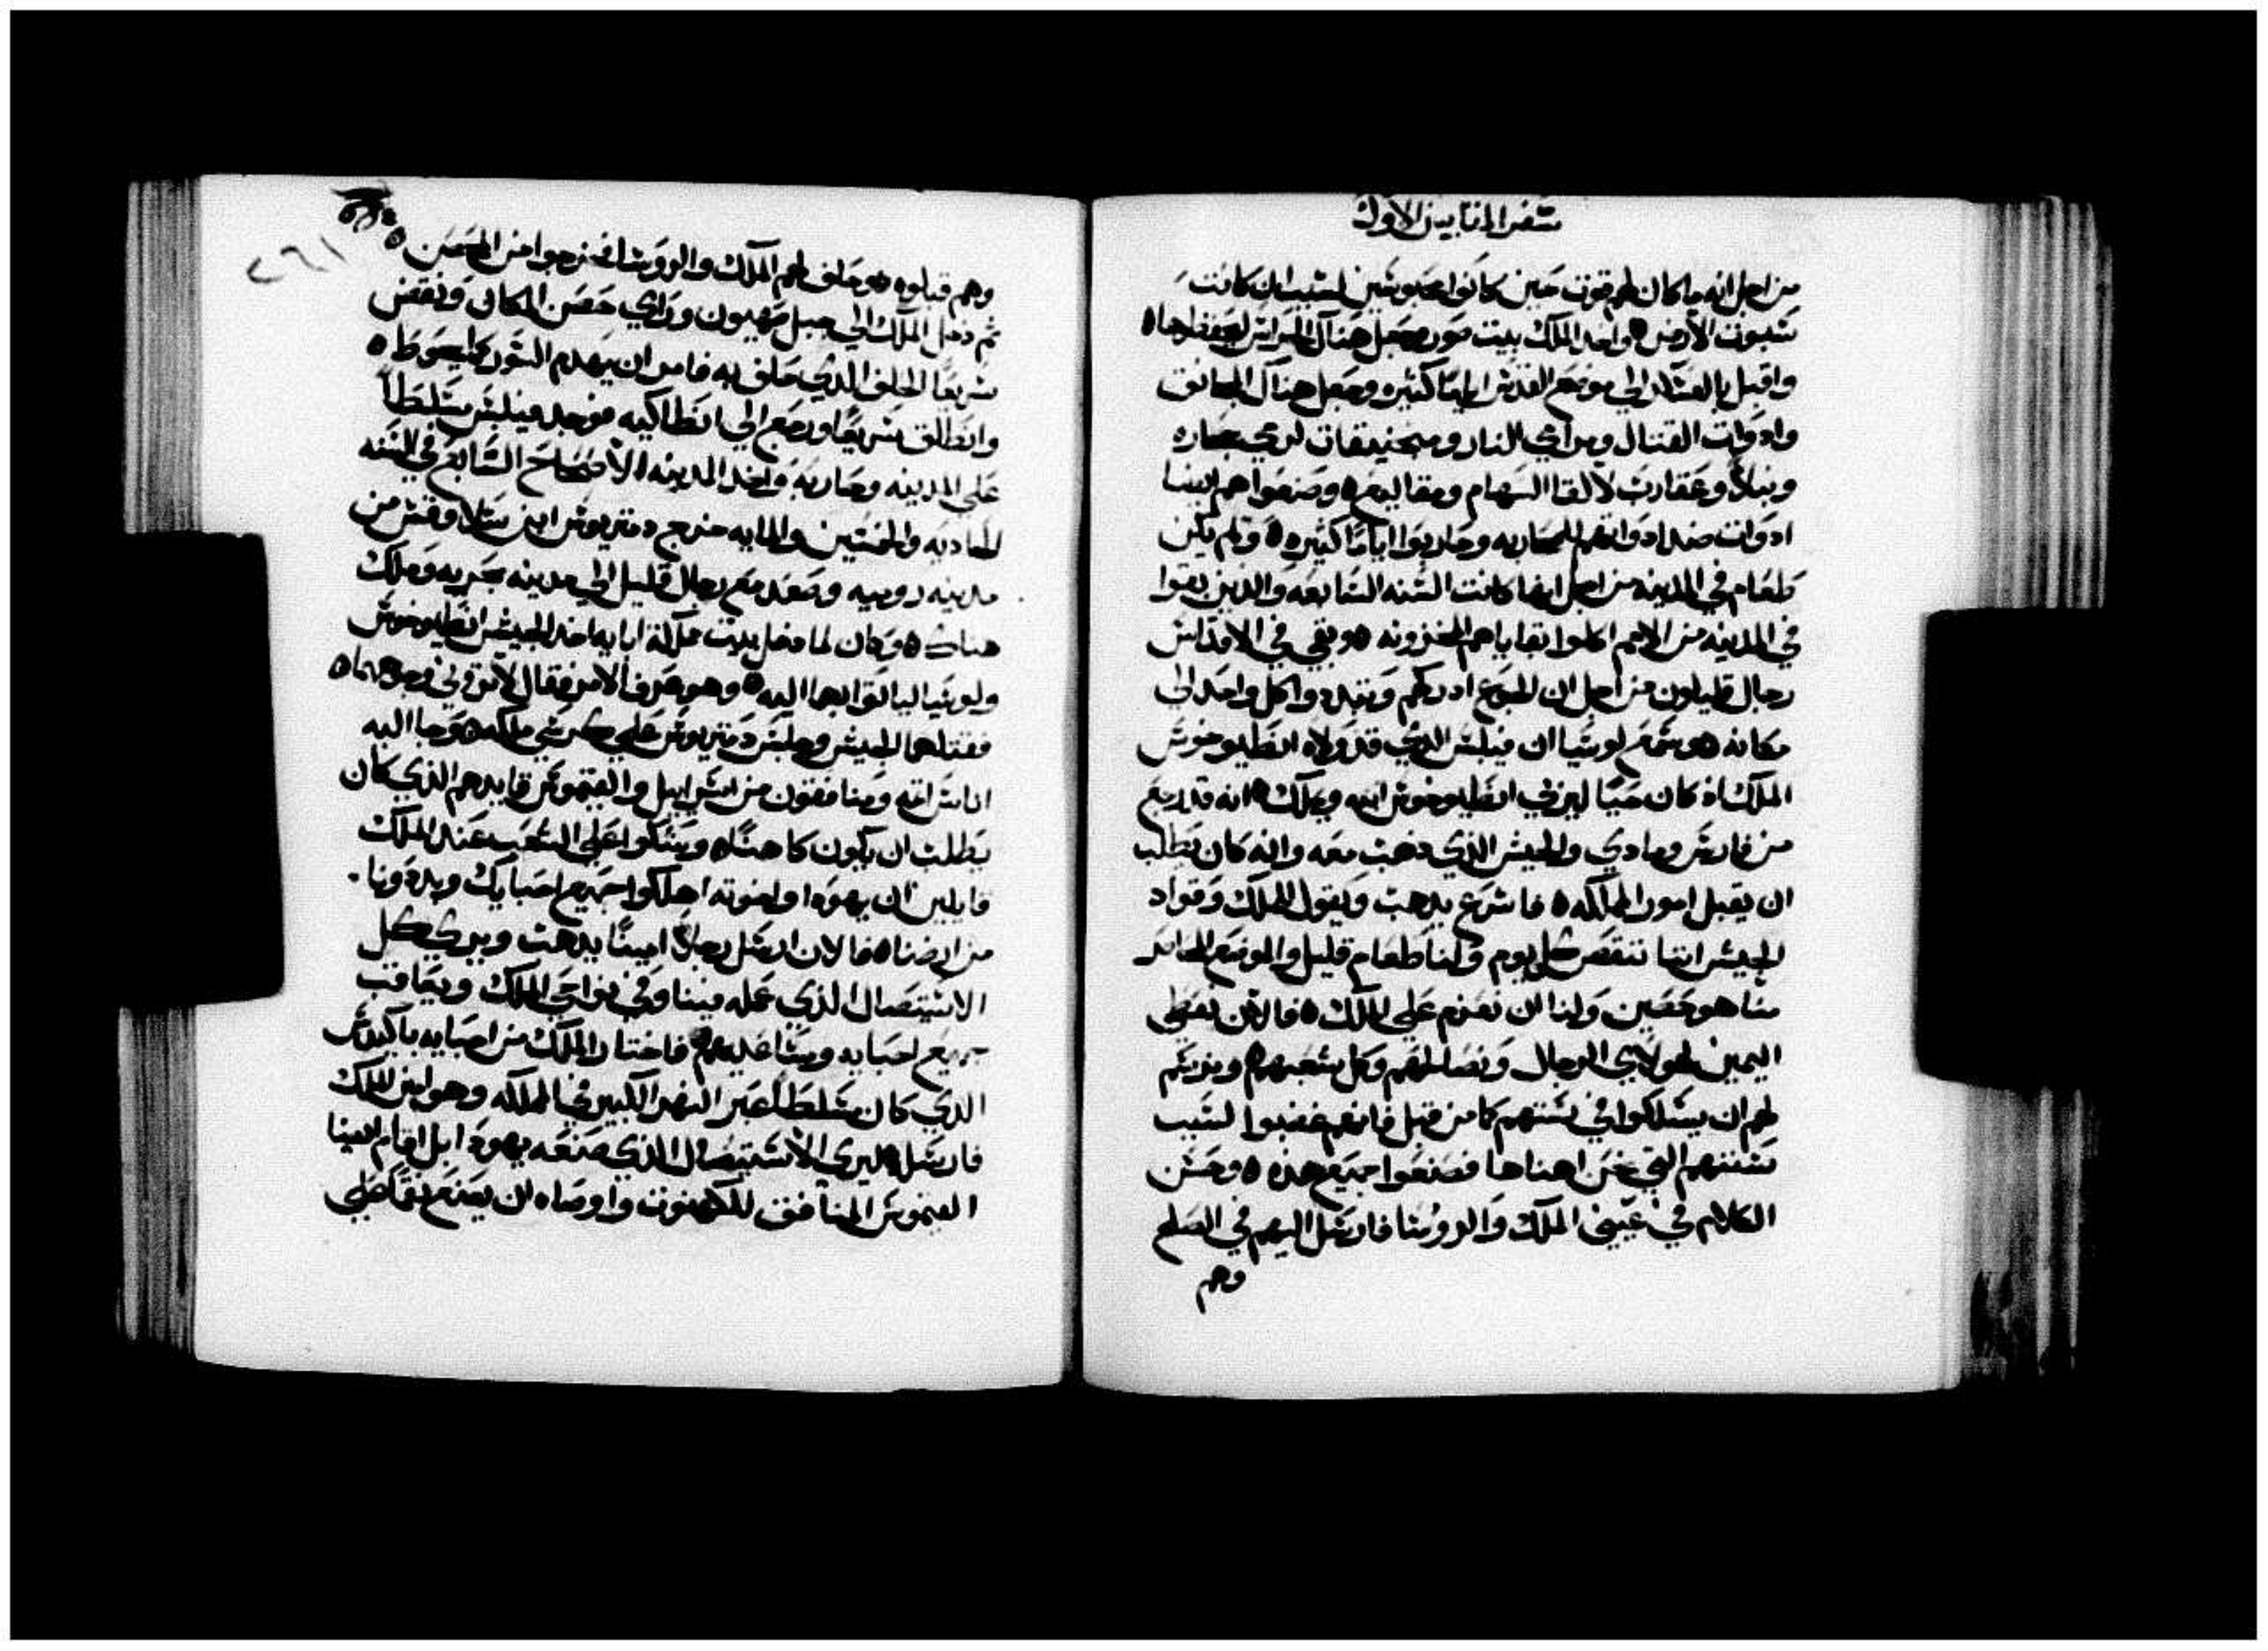 سفر المقابيين الاول
من اجل انه ما كان لهم قوت حين كانوا محبوسين لسبب ان كانت
سبوت الارض ه واخد الملك بيت صور وجعل هناك الحراس لحفظها ه
واقبل بالعسكر الي موضع القدس اياما كثيره وجعل هناك المجانق
وادوات القتال ومرامي النار ومنجنيقات لرمي حجاره
ونبلاً وعقارب لالقا السهام ومقاليع ه وصنعوا هم ايضا
ادوات ضد ادواتهم للمحاربه وحاربوا اياماً كثيره ه ولم يكن
طعام في المدينه من اجل انها كانت السنه السابعه والدين بقوا
في المدينه من الامم اكلوا بقاياهم المخزونه ه وبقي في الاقداس
رجال قليلون من اجل ان الجوع ادركهم وتبددوا كل واحد الى
مكانه ه وسمع لوسيا ان فيلبس الدي قد ولاه انطيوخوس
الملك اذ كان حيًا ليربي انطيوخوس ابنه ويملك ه انه قد رجع
من فارس ومادي والجيش الذي دهب معه وانه كان يطلب
ان يقبل امور المملكه ه فاسرع يدهب ويقول للملك وقواد
الجيش اننا ننقص كل يوم ولنا طعام قليل والموضع المحاصر
منا هو حصين ولنا ان نعزم على الملك ه فالان نعطي
اليمين لهولاي الرجال ونصالحهم وكل شعبهم ه ونرسم
لهم ان يسلكوا في سننهم كما من قبل فانهم غضبوا لسبب
سننهم التي نحن اهناها فصنعوا جميع هذه ه وحسن
الكلام في عيني الملك والروسا فارسل اليهم في الصلح
وهم
٢٦١
وهم قبلوه ه وحلف لهم الملك والروسا فخرجوا من الحصن ه
ثم دخل الملك الي جبل صهيون وراي حصن المكان ونقض
سريعًا الحلف الدي حلف به فامر ان يهدم السور كما يحوط ه
وانطلق سريعًا ورجع الى انطاكيه فوجد فيلبس متسلطاً
على المدينه وحاربه واخد المدينه الاصحاح السابع في السنه
الحاديه والخمسين والمايه خرج دمتريوس ابن سلاوقس من
مدينه روميه وصعد مع رجال قليل الي مدينه بحريه وملك
هناك ه وكان لما دخل بيت مملكة ابايه اخد الجيش انطيوخوس
ولوسيا لياتوا بهما اليه ه وهو عرف الامر فقال لا تروني وجوههما ه
فقتلهما الجيش وجلس دمتريوس على كرسي ملكه ه وجا اليه
اناس اثمه ومنافقون من اسراييل والقيموس قايدهم الذي كان
يطلب ان يكون كاهنًا ه وشكوا على الشعب عند الملك
قايلين ان يهودا واخوته اهلكوا جميع احبايك وبددونا
من ارضنا ه فالان ارسل رجلاً امينًا يدهب ويرى كل
الاستيصال الذي عمله فينا وفي نواحي الملك ويعاقب
جميع احبايه ومساعديهم ه فاختار الملك من احبايه باكيدوس
الدي كان متسلطاً عبر النهر الكبير في المملكه وهو امين للملك
فارسله ليري الاستيصال الذي صنعه يهودا بل اقام ايضا
القيموس المنافق للكهنوت واوصاه ان يصنع نقمًا على